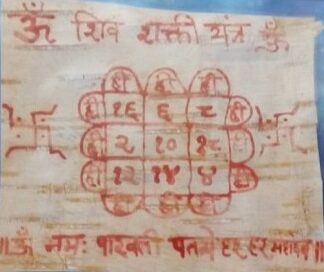 ॐ शिव शक्ती यंत्र ॐ
ह्रीं ह्रीं ह्रीं
ह्रीं १६ ६ ८ ह्रीं
ह्रीं २ १० १८ ह्रीं
ह्रीं १२ १४ ४ ह्रीं
ह्रीं ह्रीं ह्रीं
॥ॐ नमः पारवती पतये हर हर महादेव॥